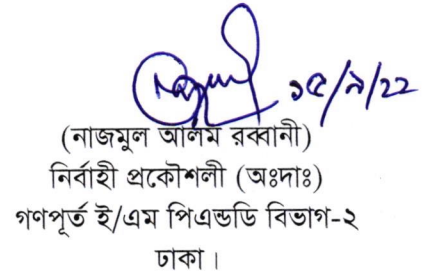 ১৫/৯/২২
(নাজমুল আলম রব্বানী)
নির্বাহী প্রকৌশলী (অঃদাঃ)
গণপূর্ত ই/এম পিএন্ডডি বিভাগ-২
ঢাকা।